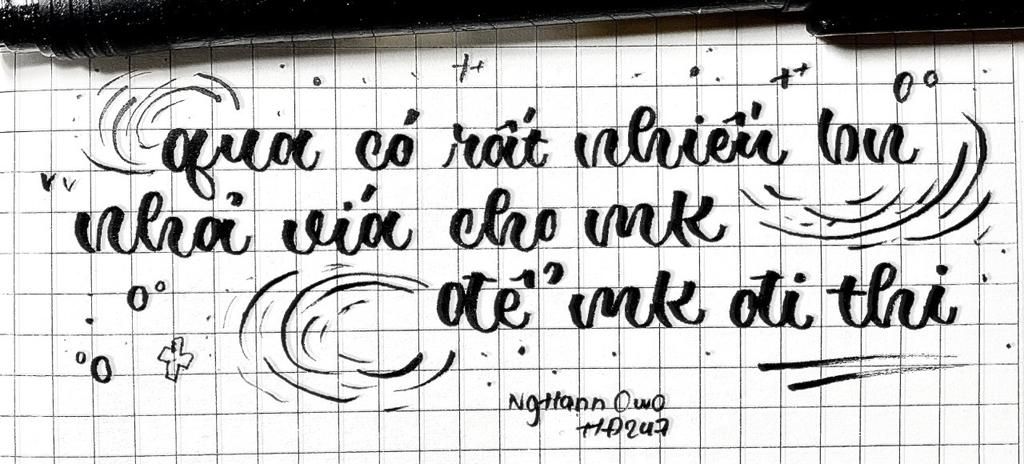 qua có rất nhiều bn
nhả vía cho mk
để mk đi thi
NgHann OwO
HĐ247